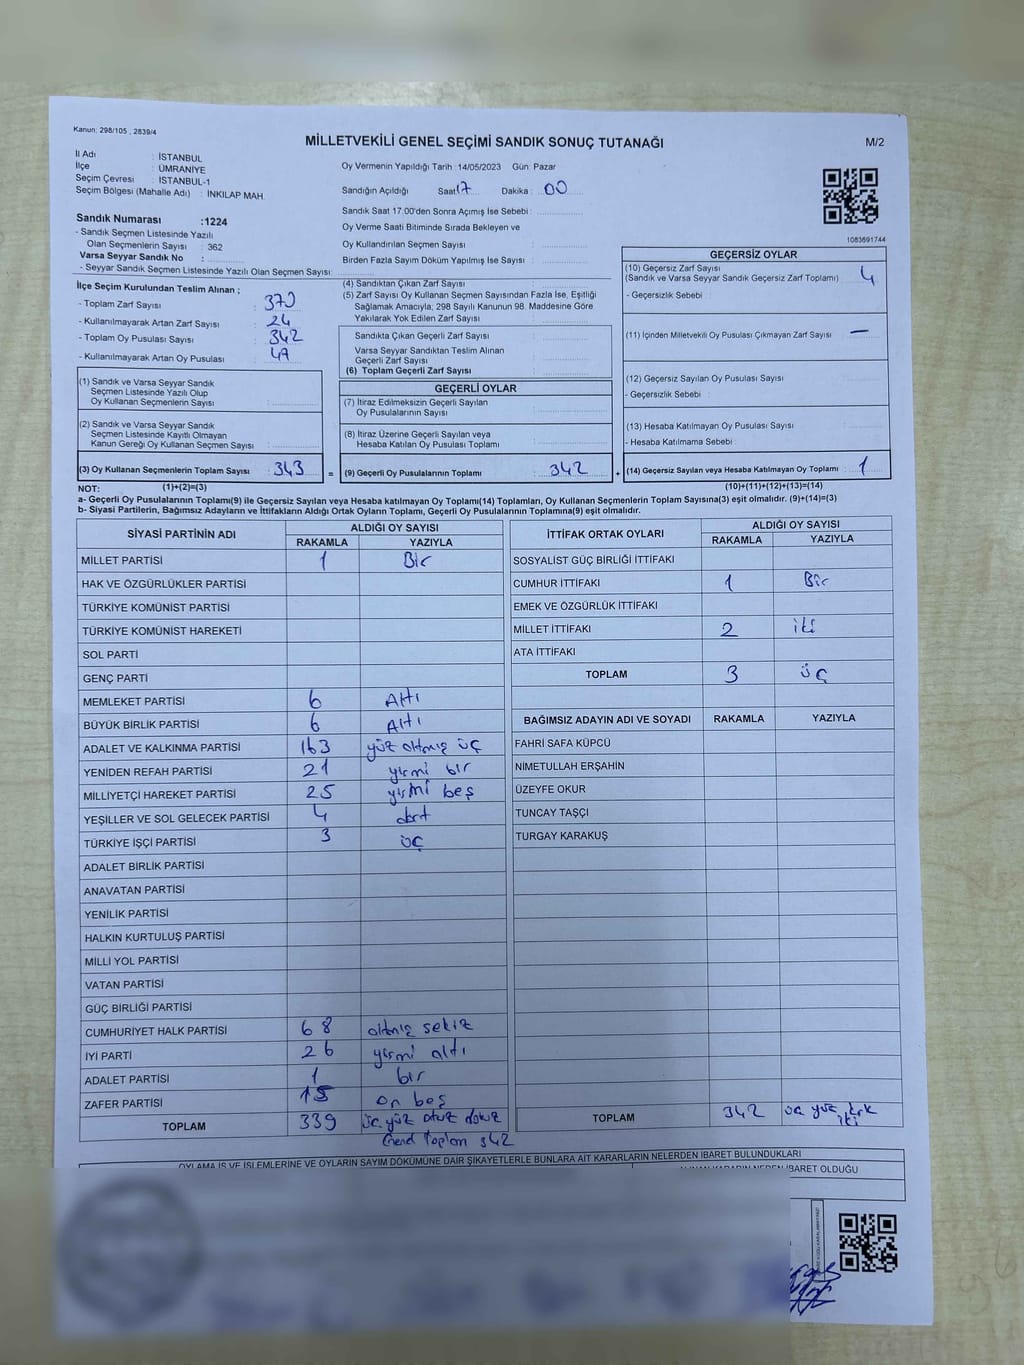 Kanun: 298/105 , 2839/4
MİLLETVEKİLİ GENEL SEÇİMİ SANDIK SONUÇ TUTANAĞI
M/2
İl Adı : İSTANBUL
İlçe : ÜMRANİYE
Seçim Çevresi : İSTANBUL-1
Seçim Bölgesi (Mahalle Adı) : İNKILAP MAH.
Oy Vermenin Yapıldığı Tarih : 14/05/2023 Gün: Pazar
Sandığın Açıldığı Saat: 17 Dakika : 00
Sandık Saat 17:00'den Sonra Açımış İse Sebebi :
Oy Verme Saati Bitiminde Sırada Bekleyen ve
Oy Kullandırılan Seçmen Sayısı :
Birden Fazla Sayım Döküm Yapılmış İse Sayısı :
1083691744
Sandık Numarası :1224
- Sandık Seçmen Listesinde Yazılı
Olan Seçmenlerin Sayısı : 362
Varsa Seyyar Sandık No :
- Seyyar Sandık Seçmen Listesinde Yazılı Olan Seçmen Sayısı:
İlçe Seçim Kurulundan Teslim Alınan ;
- Toplam Zarf Sayısı : 370
- Kullanılmayarak Artan Zarf Sayısı : 24
- Toplam Oy Pusulası Sayısı : 342
- Kullanılmayarak Artan Oy Pusulası :
(1) Sandık ve Varsa Seyyar Sandık
Seçmen Listesinde Yazılı Olup
Oy Kullanan Seçmenlerin Sayısı :
(2) Sandık ve Varsa Seyyar Sandık
Seçmen Listesinde Kayıtlı Olmayan
Kanun Gereği Oy Kullanan Seçmen Sayısı :
(3) Oy Kullanan Seçmenlerin Toplam Sayısı : 343
(1)+(2)=(3)
(4) Sandıktan Çıkan Zarf Sayısı :
(5) Zarf Sayısı Oy Kullanan Seçmen Sayısından Fazla İse, Eşitliği
Sağlamak Amacıyla; 298 Sayılı Kanunun 98. Maddesine Göre
Yakılarak Yok Edilen Zarf Sayısı :
Sandıkta Çıkan Geçerli Zarf Sayısı :
Varsa Seyyar Sandıktan Teslim Alınan
Geçerli Zarf Sayısı :
(6) Toplam Geçerli Zarf Sayısı :
GEÇERLİ OYLAR
(7) İtiraz Edilmeksizin Geçerli Sayılan
Oy Pusulalarının Sayısı :
(8) İtiraz Üzerine Geçerli Sayılan veya
Hesaba Katılan Oy Pusulası Toplamı :
= (9) Geçerli Oy Pusulalarının Toplamı : 342
GEÇERSİZ OYLAR
(10) Geçersiz Zarf Sayısı
(Sandık ve Varsa Seyyar Sandık Geçersiz Zarf Toplamı) : 4
- Geçersizlik Sebebi :
(11) İçinden Milletvekili Oy Pusulası Çıkmayan Zarf Sayısı : —
(12) Geçersiz Sayılan Oy Pusulası Sayısı :
- Geçersizlik Sebebi :
(13) Hesaba Katılmayan Oy Pusulası Sayısı :
- Hesaba Katılmama Sebebi :
+ (14) Geçersiz Sayılan veya Hesaba Katılmayan Oy Toplamı : 1
(10)+(11)+(12)+(13)=(14)
NOT:
a- Geçerli Oy Pusulalarının Toplamı(9) ile Geçersiz Sayılan veya Hesaba katılmayan Oy Toplamı(14) Toplamları, Oy Kullanan Seçmenlerin Toplam Sayısına(3) eşit olmalıdır. (9)+(14)=(3)
b- Siyasi Partilerin, Bağımsız Adayların ve İttifakların Aldığı Ortak Oyların Toplamı, Geçerli Oy Pusulalarının Toplamına(9) eşit olmalıdır.
SİYASİ PARTİNİN ADI ALDIĞI OY SAYISI
RAKAMLA YAZIYLA
MİLLET PARTİSİ 1 Bir
HAK VE ÖZGÜRLÜKLER PARTİSİ
TÜRKİYE KOMÜNİST PARTİSİ
TÜRKİYE KOMÜNİST HAREKETİ
SOL PARTİ
GENÇ PARTİ
MEMLEKET PARTİSİ 6 Altı
BÜYÜK BİRLİK PARTİSİ 6 Altı
ADALET VE KALKINMA PARTİSİ 163 yüz altmış üç
YENİDEN REFAH PARTİSİ 21 yirmi bir
MİLLİYETÇİ HAREKET PARTİSİ 25 yirmi beş
YEŞİLLER VE SOL GELECEK PARTİSİ 4 dört
TÜRKİYE İŞÇİ PARTİSİ 3 üç
ADALET BİRLİK PARTİSİ
ANAVATAN PARTİSİ
YENİLİK PARTİSİ
HALKIN KURTULUŞ PARTİSİ
MİLLİ YOL PARTİSİ
VATAN PARTİSİ
GÜÇ BİRLİĞİ PARTİSİ
CUMHURİYET HALK PARTİSİ 68 altmış sekiz
İYİ PARTİ 26 yirmi altı
ADALET PARTİSİ 1 bir
ZAFER PARTİSİ 15 on beş
TOPLAM 339 üç yüz otuz dokuz
Genel Toplam 342
İTTİFAK ORTAK OYLARI ALDIĞI OY SAYISI
RAKAMLA YAZIYLA
SOSYALİST GÜÇ BİRLİĞİ İTTİFAKI
CUMHUR İTTİFAKI 1 Bir
EMEK VE ÖZGÜRLÜK İTTİFAKI
MİLLET İTTİFAKI 2 iki
ATA İTTİFAKI
TOPLAM 3 üç
BAĞIMSIZ ADAYIN ADI VE SOYADI RAKAMLA YAZIYLA
FAHRİ SAFA KÜPCÜ
NİMETULLAH ERŞAHİN
ÜZEYFE OKUR
TUNCAY TAŞÇI
TURGAY KARAKUŞ
TOPLAM 342 üç yüz kırk
iki
OYLAMA İŞ VE İŞLEMLERİNE VE OYLARIN SAYIM DÖKÜMÜNE DAİR ŞİKAYETLERLE BUNLARA AİT KARARLARIN NELERDEN İBARET BULUNDUKLARI
ALINAN KARARIN NEDEN İBARET OLDUĞU